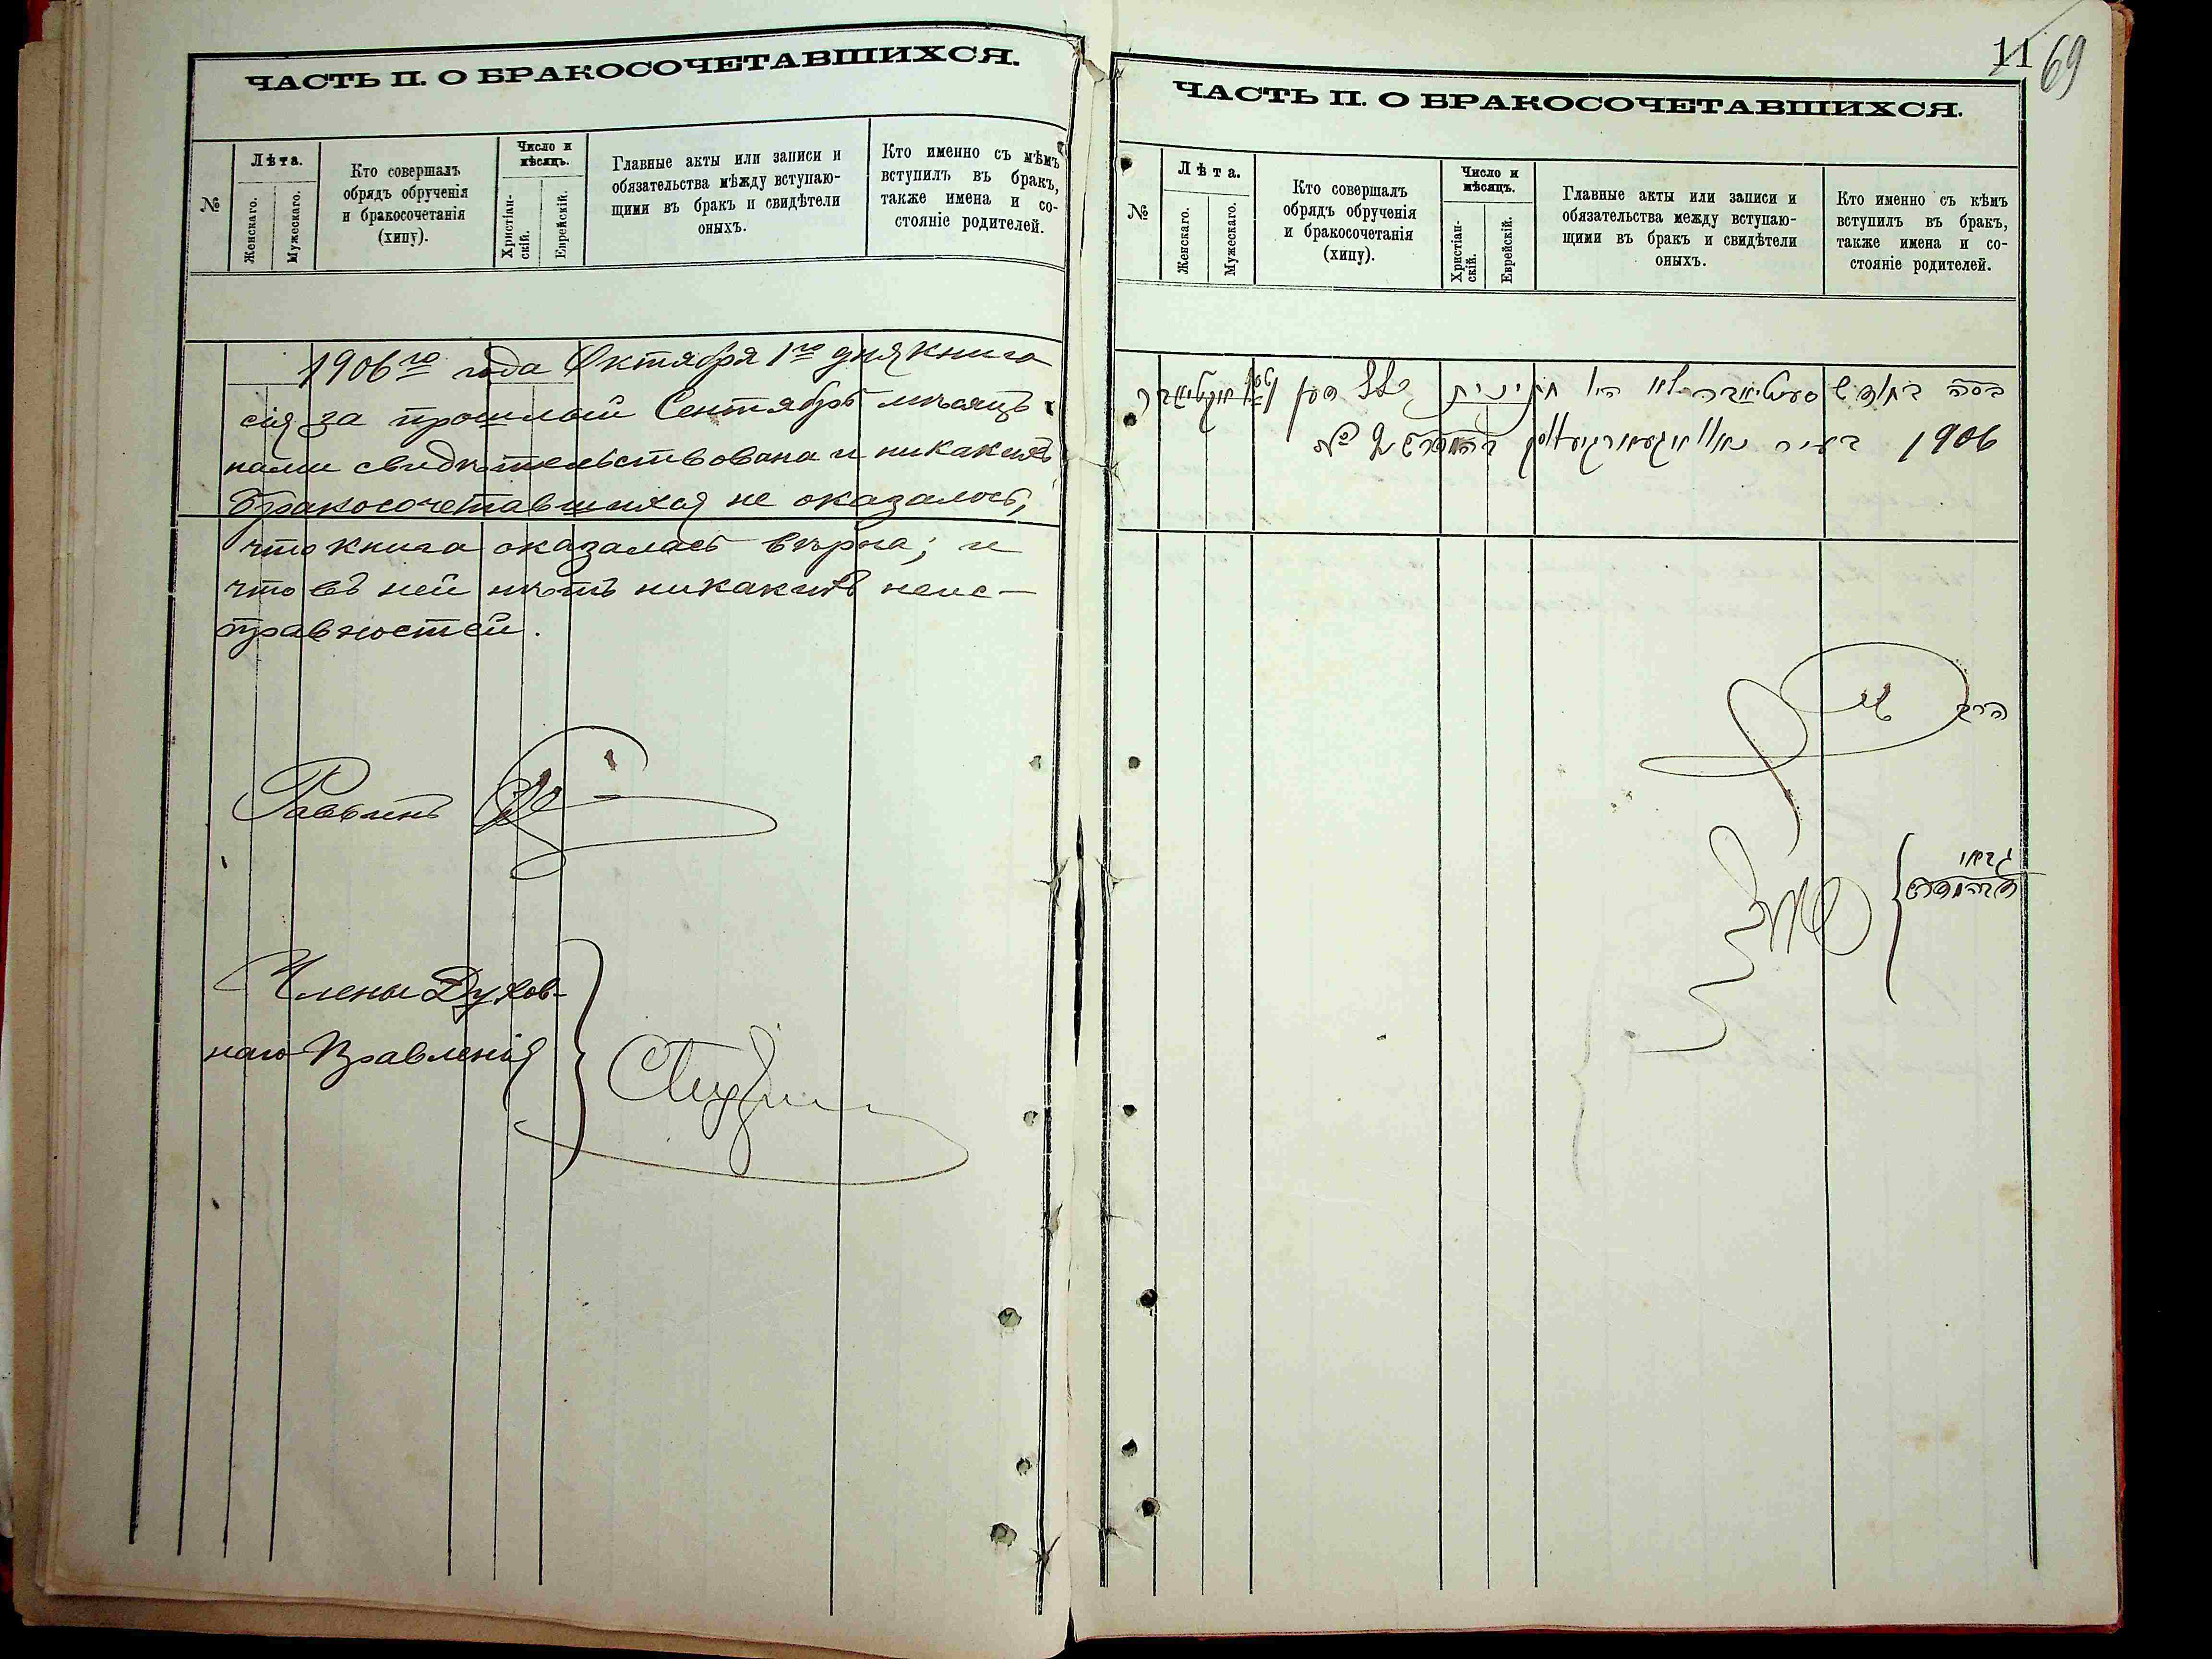 ЧАСТЬ II. О БРАКОСОЧЕТАВШИХСЯ.
№
Лѣта.
Женскаго.
Мужескаго.
Кто совершалъ
обрядъ обрученія
и бракосочетанія
(хипу).
Число и
мѣсяцъ.
Христіан-
скій.
Еврейскій.
Главные акты или записи и
обязательства мѣжду вступаю-
щими въ бракъ и свидѣтели
оныхъ.
Кто именно съ мѣмъ
вступилъ въ бракъ,
также имена и со-
стояніе родителей.
1906го года Октября 1го дня книга
сія за прошлый Сентябрь мѣсяцъ
нами свидѣтельствована и никакихъ
бракосочетавшихся не оказалось,
что книга оказалась вѣрна; и
что въ ней нѣтъ никакихъ неис-
правностей.
Раввинъ
Члены Духов-
наго Правленія
11 69
ЧАСТЬ II. О БРАКОСОЧЕТАВШИХСЯ.
№
Лѣта.
Женскаго.
Мужескаго.
Кто совершалъ
обрядъ обрученія
и бракосочетанія
(хипу).
Число и
мѣсяцъ.
Христіан-
скій.
Еврейскій.
Главные акты или записи и
обязательства между вступаю-
щими въ бракъ и свидѣтели
оныхъ.
Кто именно съ кѣмъ
вступилъ въ бракъ,
также имена и со-
стояніе родителей.
בחודש סעטיאברה לא היו דען 1 אקטיאבר
1906
הרב
גבאי